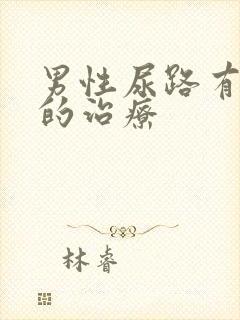 男性尿路有
的治疗
林睿